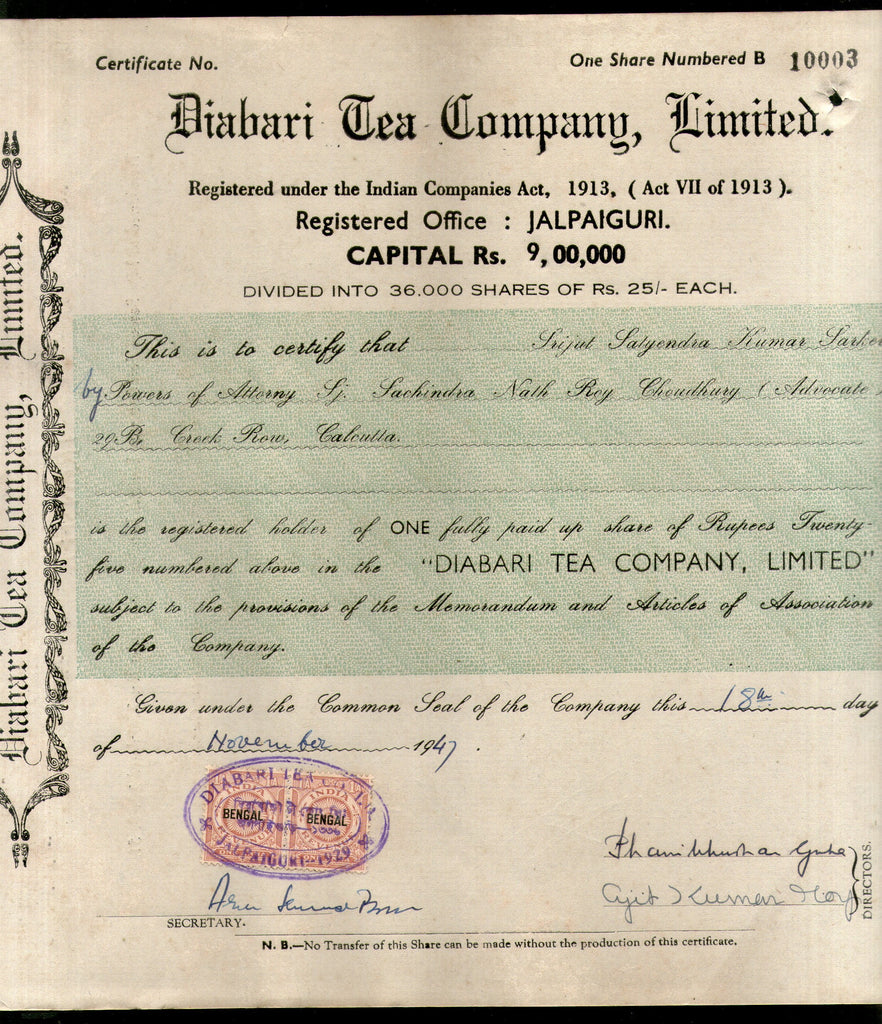 Certificate No.
One Share Numbered B 10003
Diabari Tea Company, Limited.
Registered under the Indian Companies Act, 1913, ( Act VII of 1913 ).
Registered Office : JALPAIGURI.
CAPITAL Rs. 9,00,000
DIVIDED INTO 36.000 SHARES OF Rs. 25/- EACH.
This is to certify that Srijut Satyendra Kumar Sarker
by Powers of Attorny Sj. Sachindra Nath Roy Choudhury ( Advocate
29B, Creek Row, Calcutta.
is the registered holder of ONE fully paid up share of Rupees Twenty-
five numbered above in the "DIABARI TEA COMPANY, LIMITED"
subject to the provisions of the Memorandum and Articles of Association
of the Company.
Given under the Common Seal of the Company this 18th day
of November 1947.
DIABARI TEA CO. LD.
INDIA INDIA
BENGAL BENGAL
JALPAIGURI-1929
Phanibhushan Guha
Ajit Kumar
DIRECTORS.
SECRETARY.
N. B.—No Transfer of this Share can be made without the production of this certificate.
Diabari Tea Company, Limited.